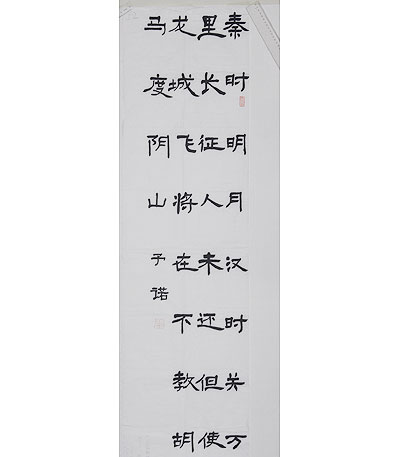 秦时明月汉时关万
里长征人未还但使
龙城飞将在不教胡
马度阴山
予诺